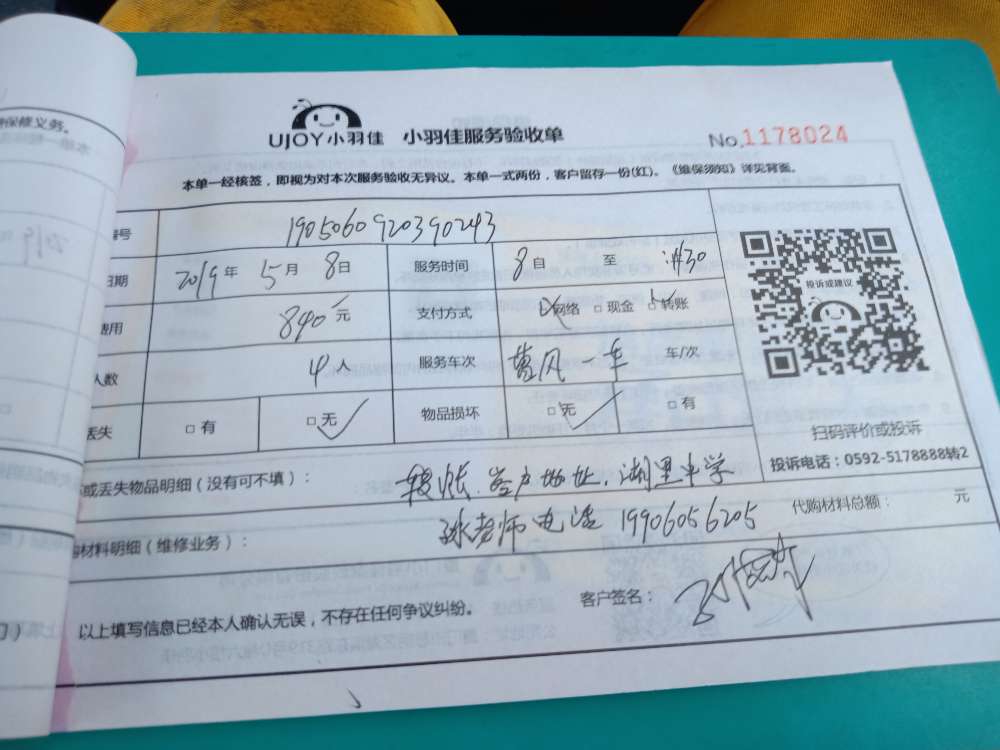 保修义务。
UJOY小羽佳 小羽佳服务验收单
No.1178024
本单一经核签，即视为对本次服务验收无异议。本单一式两份，客户留存一份(红)。《维保须知》详见背面。
编号 190506092039 0243
日期 2019年 5月 8日 服务时间 8自 至 :30
费用 840元 支付方式 □网络 □现金 □转账
人数 4人 服务车次 一车 车/次
丢失 □有 □无 物品损坏 □无 □有
投诉或建议
扫码评价或投诉
投诉电话：0592-5178888转2
或丢失物品明细（没有可不填）： 转账、客户地址，湖里中学
代购材料总额： 元
购材料明细（维修业务）： 老师电话 19906056205
以上填写信息已经本人确认无误，不存在任何争议纠纷。 客户签名：